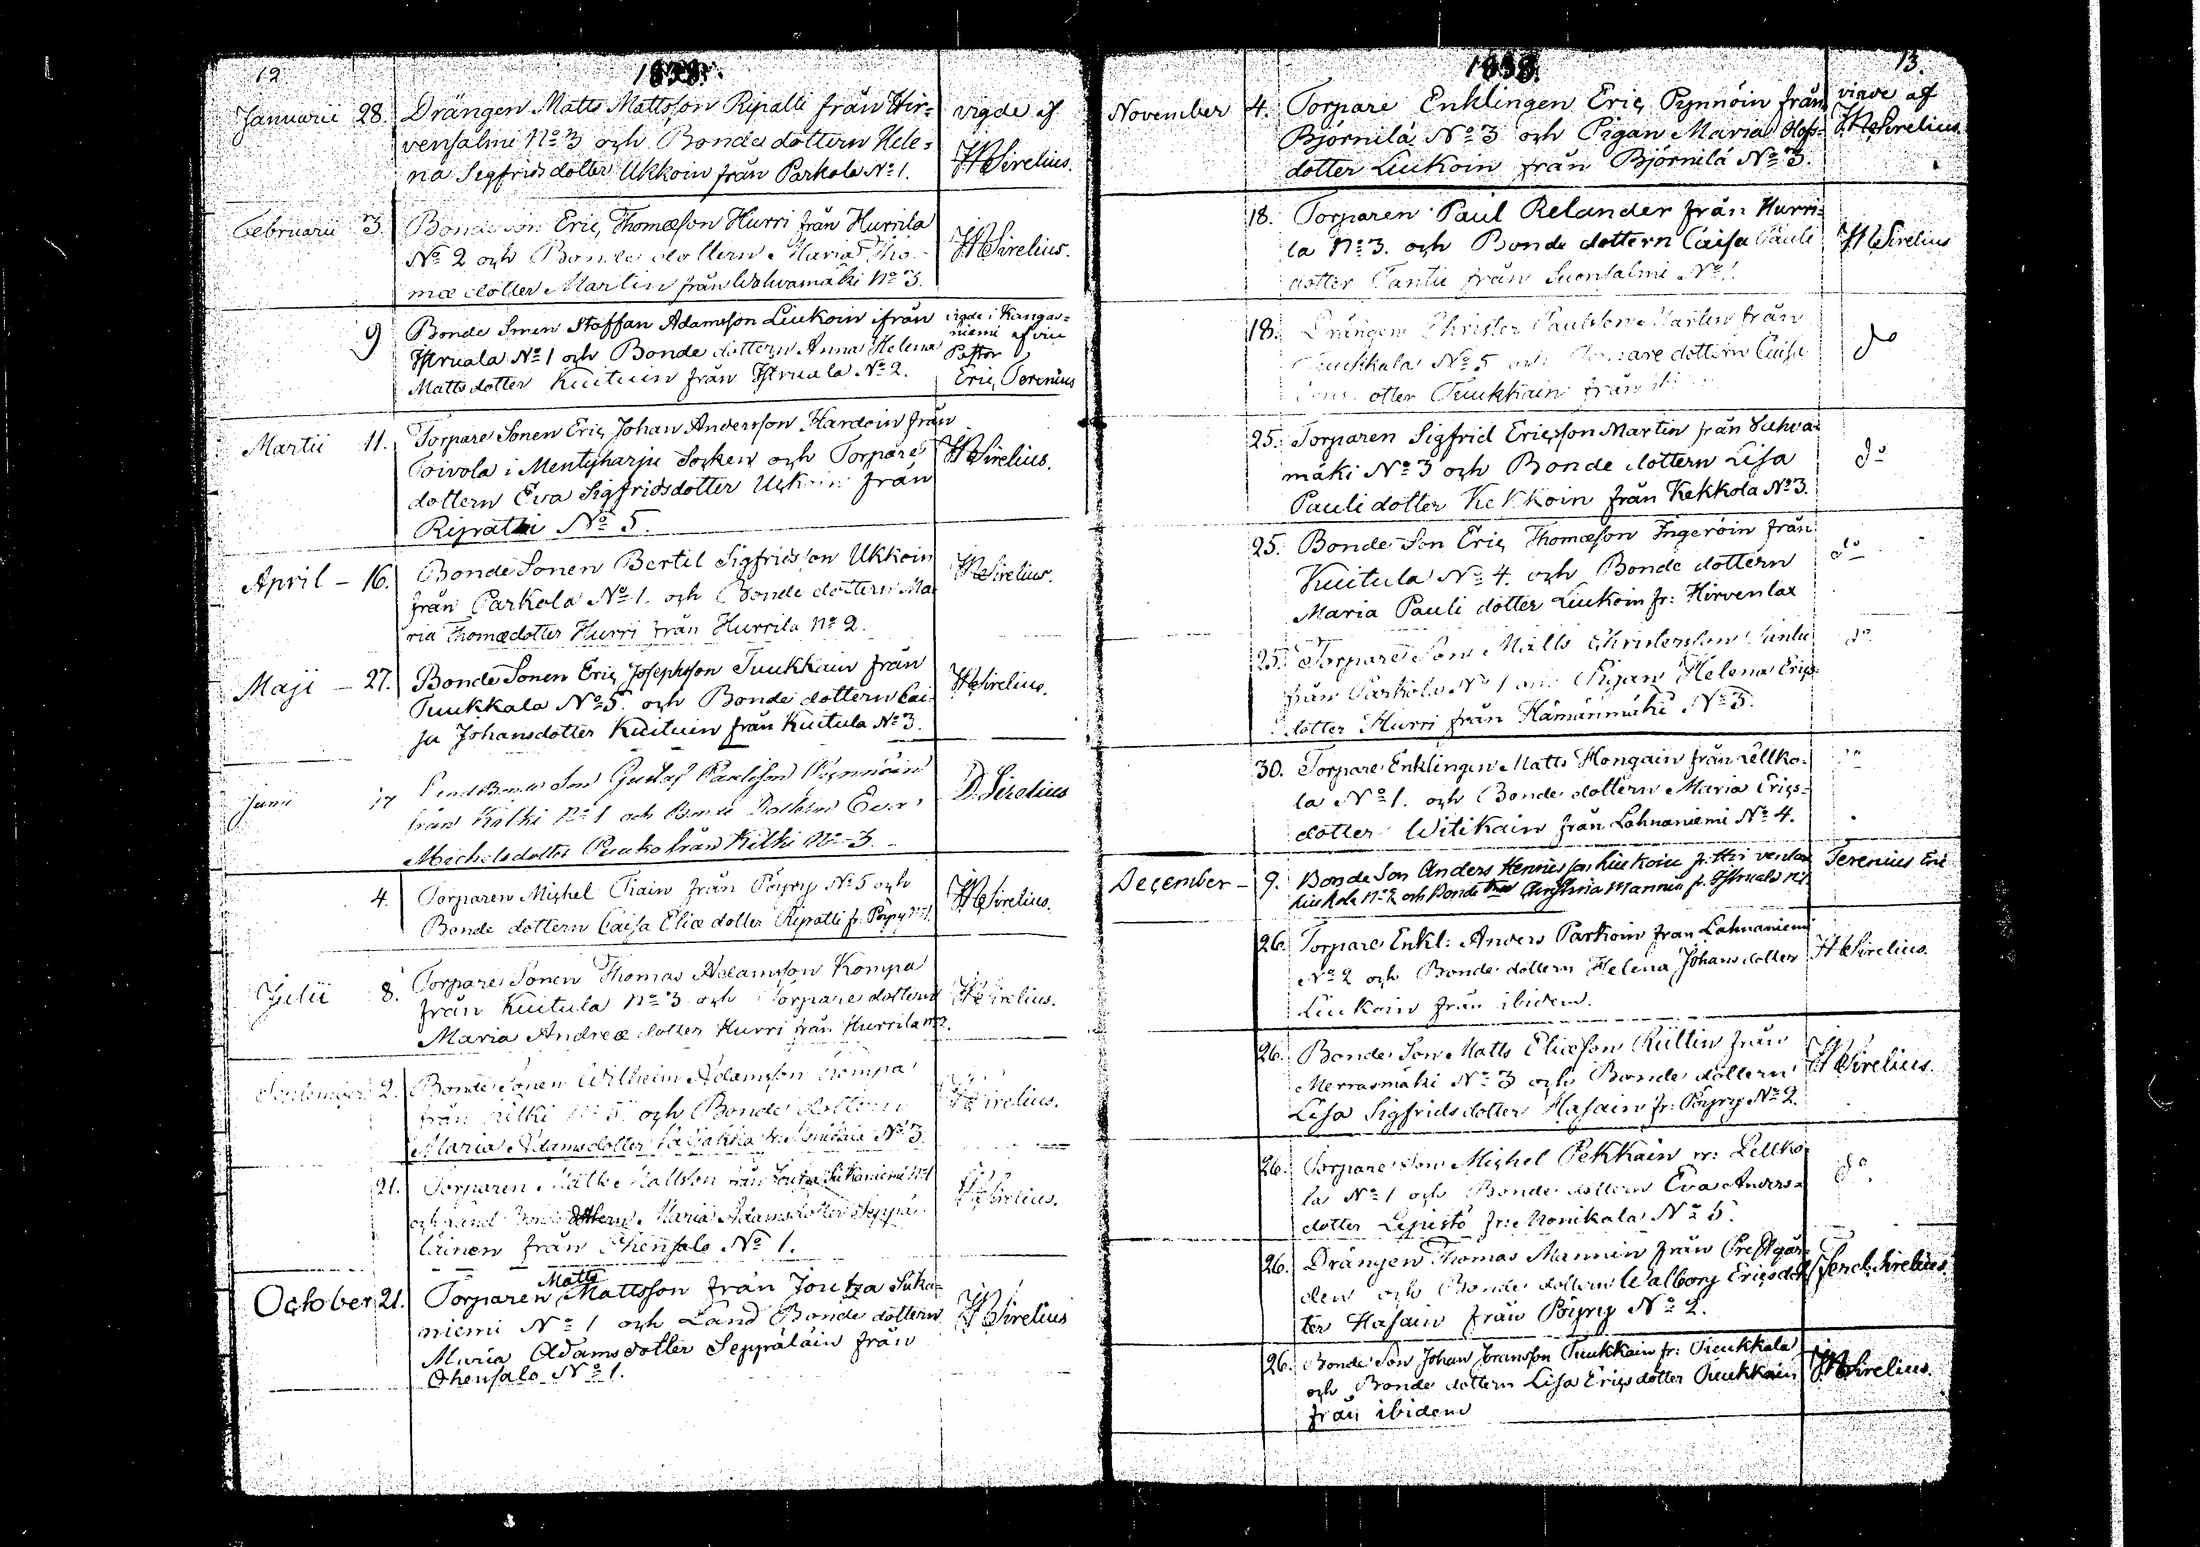 12
1838.
Januarii 28. Drängen Matts Mattsson Ripatti från Hir= vigde af
vensalmi No 3 och Bonde dottern Hele= HSirelius.
na Segfridsdotter Ukkoin från Parkola No 1.
Februarii 3. Bondeson Eric Thomæson Hurri från Hurrila HSirelius.
No 2 och Bonde dottern Maria Tho-
mæ dotter Martin från Wahvamäki No 3.
9 Bonde Sonen Staffan Adamsson Liukoin ifrån vigde i Kangas=
Istruala No 1 och Bonde dottern Anna Helena niemi af vice
Matts dotter Kuituin från Istruala No 2. Pastor
Eric Terenius
Martii 11. Torpare Sonen Eric Johan Andersson Hardoin från
Toivola i Mentyharju Socken och Torpare HSirelius.
dottern Eva Sigfridsdotter från
Ripatti No 5.
April - 16. Bonde Sonen Bertil Sigfridsson Ukkoin HSirelius.
från Parkola No 1. och Bonde dottern Ma
ria Thomædotter Hurri från Hurrila No 2.
Maji - 27. Bonde Sonen Eric Josephsson Tuukkain från HSirelius.
Tuukkala No 5. och Bonde dottern Cai-
sa Johansdotter Kuituin från Kuitula No 3.
Junii 17 Son Gustaf Paulsson Pynnöin D. Sirelius
från Kitki No 1 och Bonde Dottern Eva
Michelsdotter från Kitki No 3.
4. Torparen Michel Tiain från Pöyry No 5 och HSirelius.
Bonde dottern Caisa Eliæ dotter Ripatti fr. Pöyry No 1.
Julii 8. Torpare Sonen Thomas Adamsson Kompa
från Kuitula No 3 och Torpare dottern HSirelius.
Maria Andreæ dotter Hurri från Hurrila No 2.
September 2. Bonde Sonen Wilhelm Adamsson Kompa
från Kitki No 5 och Bonde dottern HSirelius.
Maria Adamsdotter No 3.
21. Torparen Matts Mattsson från Joutza Suikaniemi No 1
och Land Bonde dottern Maria Adamsdotter Seppä HSirelius.
läinen från Ohensalo No 1.
October 21. Torparen Matts Mattsson från Joutza Suika=
niemi No 1 och Land Bonde dottern HSirelius
Maria Adamsdotter Seppäläin från
Ohensalo No 1.
13.
1838.
November 4. Torpare Enklingen Eric Pynnöin från vigde af
Björnilä No 3 och Pigan Maria Olofs= HSirelius.
dotter Liukoin från Björnilä No 3.
18. Torparen Paul Relander från Hurri=
la No 3. och Bonde dottern Caisa Pauli HSirelius
dotter Tantu från Suonsalmi No 1.
18. Drängen Christer Paulsson Martin från
Tuukkala No 5 och dottern Caisa do
dotter Tuukkain från
25. Torparen Sigfrid Ericsson Martin från Wahva=
mäki No 3 och Bonde dottern Lisa do
Pauli dotter Kekkoin från Kekkola No 3.
25. Bonde Son Eric Thomæson Ingeröin från
Kuitula No 4. och Bonde dottern do
Maria Pauli dotter Liukoin fr: Hirvenlax
25. Torpare Son Matts Christersson do
från Parkola No 1 och Pigan Helena Erics
dotter Hurri från Hämänmäki No 3.
30. Torpare Enklingen Matts Hongain från Lellko- do
la No 1. och Bonde dottern Maria Erics=
dotter Witikain från Lahnaniemi No 4.
December - 9. Bonde Son Anders Liukoin fr. Hirvenlax Terenius
No 2 och Bonde Mannin fr.
26. Torpare Enkl: Anders Parkoin från Lahnaniemi
No 2 och Bonde dottern Helena Johansdotter HSirelius.
Liukoin från ibidem.
26. Bonde Son Matts Eliæson Kiittin från
Merrasmäki No 3 och Bonde dottern HSirelius.
Lisa Sigfrids dotter Hasain fr: Pöyry No 2.
26. Torpare Son Michel Pekkain fr: Lellko-
la No 1 och Bonde dottern Eva Anders= do
dotter Lepistö fr: Monikala No 5.
26. Drängen Thomas Mannin från Prestgår=
den och Bonde dottern Walborg Ericsdot Sirelius
ter Hasain från Pöyry No 2.
26. Bonde Son Johan Göransson Tuukkain fr: Tuukkala
och Bonde dottern Lisa Erics dotter Tuukkain HSirelius.
från ibidem